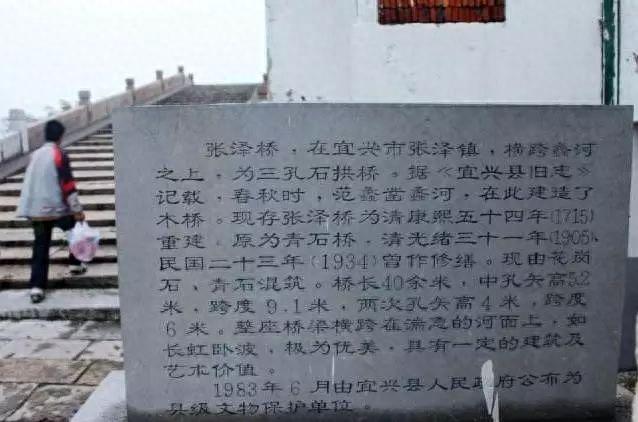 张泽桥，在宜兴市张泽镇，横跨蠡河
之上，为三孔石拱桥。据《宜兴县旧志》
记载，春秋时，范蠡凿蠡河，在此建造了
木桥。现存张泽桥为清康熙五十四年(1715)
重建。原为青石桥，清光绪三十一年(1905)、
民国二十三年(1934)曾作修缮。现由花岗
石、青石混筑。桥长40余米，中孔矢高5.2
米，跨度9.1米，两次孔矢高4米，跨度
6米。整座桥梁横跨在湍急的河面上，如
长虹卧波，极为优美，具有一定的建筑及
艺术价值。
1983年6月由宜兴县人民政府公布为
县级文物保护单位。